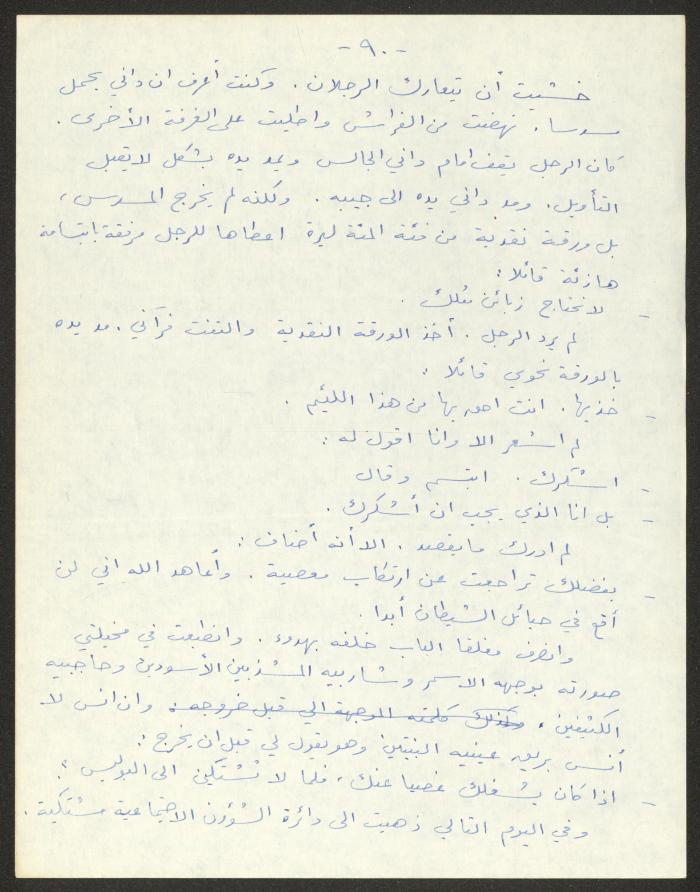 -٩٠-
خشيت أن يتعارك الرجلان. وكنت أعرف ان داني يحمل
مسدسا. نهضت من الفراش واطليت على الغرفة الأخرى.
كان الرجل يقف امام داني الجالس ويمد يده بشكل لا يقبل
التأويل. ومد داني يده الى جيبه. ولكنه لم يخرج المسدس،
بل ورقة نقدية من فئة المئة ليرة اعطاها للرجل مرفقة بابتسامة
هازئة قائلا:
- لا نحتاج زبائن مثلك.
لم يرد الرجل. أخذ الورقة النقدية والتفت فرآني. مد يده
بالورقة نحوي قائلا:
- خذيها. انت احق بها من هذا اللئيم.
لم اشعر الا وانا اقول له:
- اشكرك. ابتسم وقال
- بل انا الذي يجب ان أشكرك.
لم ادرك ما يقصد. الا أنه أضاف:
- بفضلك تراجعت عن ارتكاب معصية. وأعاهد الله اني لن
أقع في حبائل الشيطان أبدا.
وانصرف مغلقا الباب خلفه بهدوء. وانطبعت في مخيلتي
صورته بوجهه الاسمر وشاربيه المشذبين الأسودين وحاجبيه
الكثيفين، وكذلك كلمته الموجهة الي قبل خروجه. وان انس لا
أنس بريق عينيه البنيتين وهو يقول لي قبل ان يخرج:
- اذا كان يشغلك غصبا عنك، فلما لا تشتكين الى البوليس؟
وفي اليوم التالي ذهبت الى دائرة الشؤون الاجتماعية مشتكية.